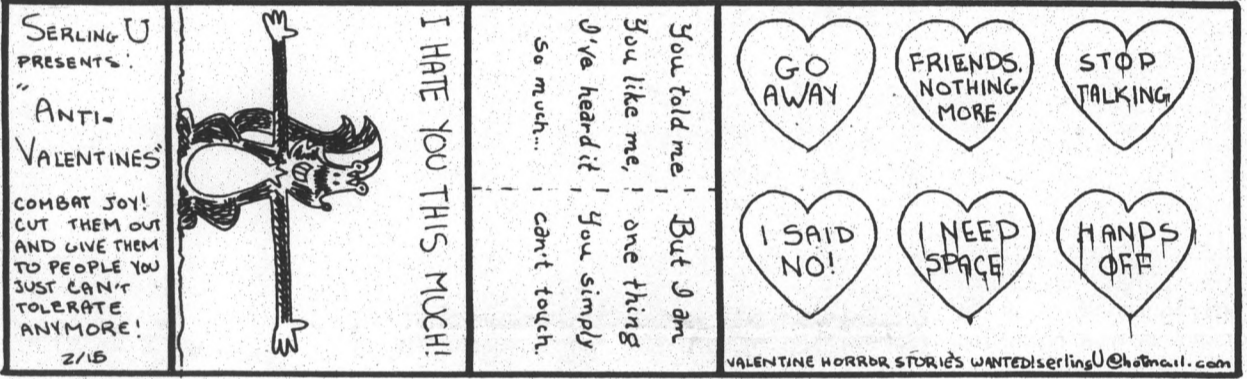 SERLING U
PRESENTS:
"ANTI-
VALENTINES"
COMBAT JOY!
CUT THEM OUT
AND GIVE THEM
TO PEOPLE YOU
JUST CAN'T
TOLERATE
ANYMORE!
2/15
I HATE YOU THIS MUCH!
You told me
You like me,
I've heard it
so much...
But I am
one thing
You simply
can't touch.
GO
AWAY
FRIENDS.
NOTHING
MORE
STOP
TALKING
I SAID
NO!
I NEED
SPACE
HANDS
OFF
VALENTINE HORROR STORIES WANTED! serlingU@hotmail.com